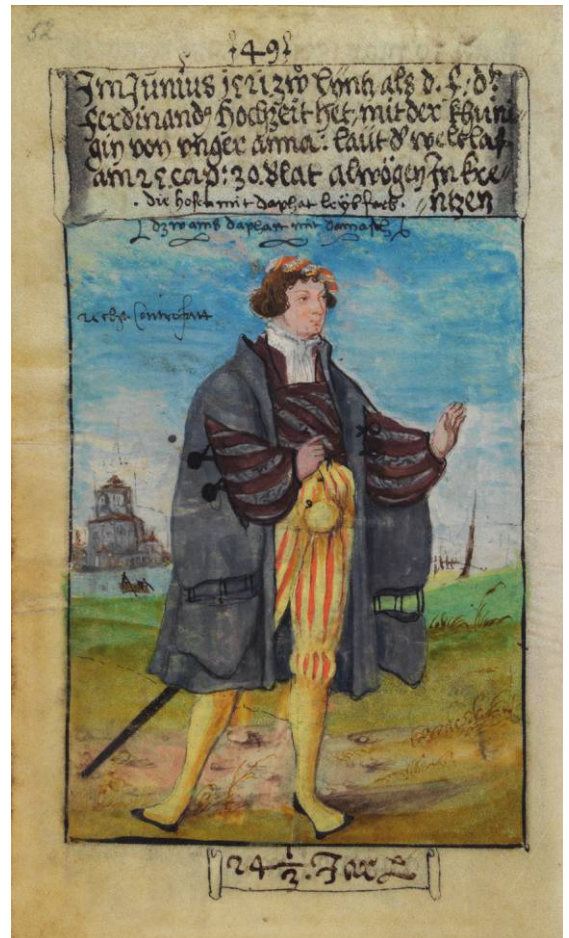 52
1491
Im Junius 1521 zů lyntz als d. f. d^t
Ferdinand^s hochzeit het, mit der khüni
gin von vnger anna: laut d^s weltlaf
am 25 cap: 30. blat alwögen In kre
· die hosen mit daphat leybfarb · ntzen
dz wams daphatt mit damasch
recht Controfatt
24 1/2 · Jar